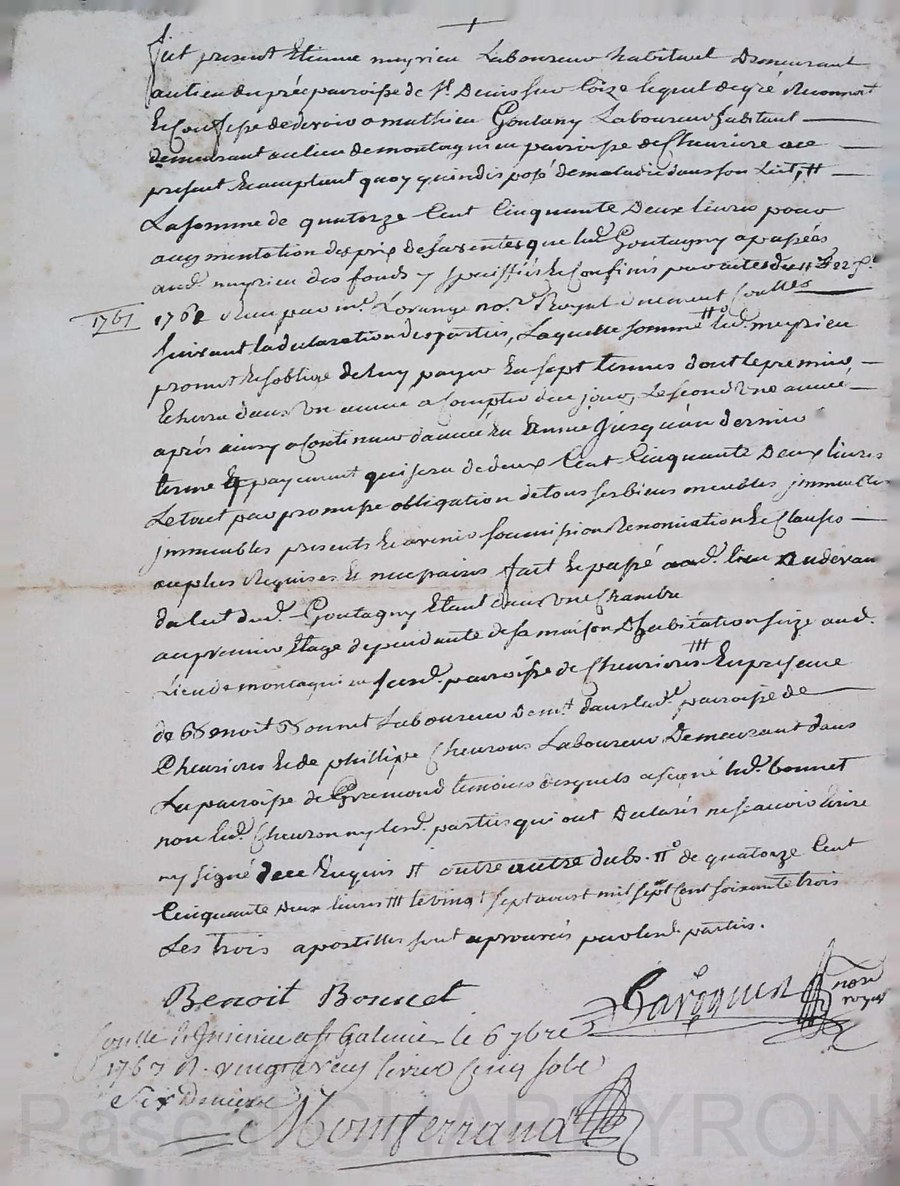 +
fut present Etienne meyrieu Laboureur habitant Demeurant
au lieu du pré paroisse de St. Denis sur Coize lequel de gré Reconnoit
Et Confesse de devoir a mathieu Goutagny Laboureur habitant
demeurant au lieu de montagnieu paroisse de Chevriere a ce
present Et acceptant quoy qu'indisposé de maladie dans son Lit, #
La somme de quatorze Cent Cinquante Deux livres pour
augmentation des prix des ventes que led. Goutagny a passées
aud. meyrieu des fonds y spesiffiés Et Confinés par actes du
1761
1762 Reçu par me. Lorange nore. Royal Controllés
suivant la declaration des parties, Laquelle somme led. meyrieu
promet Et s'oblige de luy payer En sept termes dont le premier
Echerra dans Un année a Compter de ce jour, Le second Une année
après ainsy a Continuer d'année En Année jusqu'au dernier
terme Et payement qui sera de deux Cent Cinquante Deux livres
Le tout par promesse obligation de tous ses biens meubles jmmeubles
jmmeubles presents Et avenir soumission Renonciation Et Clauses
au plus Requises Et necessaires fait Et passé aud. lieu au devan
du lit dud. Goutagny Etant dans une Chambre
au premier Etage dependante de sa maison D'habitation size aud.
Lieu de montagnieu susd. paroisse de Chevrieres ||| En presence
de Benoit Bonnet Laboureur Demt. dans lad. paroisse de
Chevrieres Et de phillippe Chevrons Laboureur Demeurant dans
La paroisse de Gramond temoins desquels a signé led. bonnet
non led. Chevron ny lesd. parties qui ont Declarés ne sçavoir Ecrire
ny signé de ce Enquis # outre autre dubs. #o de quatorze Cent
Cinquante Deux livres ||| le vingt sept aoust mil sept Cent soixante trois
Les trois apostilles sont aprouvés par lesd. parties.
Benoit Bonnet
nore
royal
le 6 7bre
1763 R. vingt livres Cinq sols
Six Deniers
Montferrand
Pascal CHAPEYRON